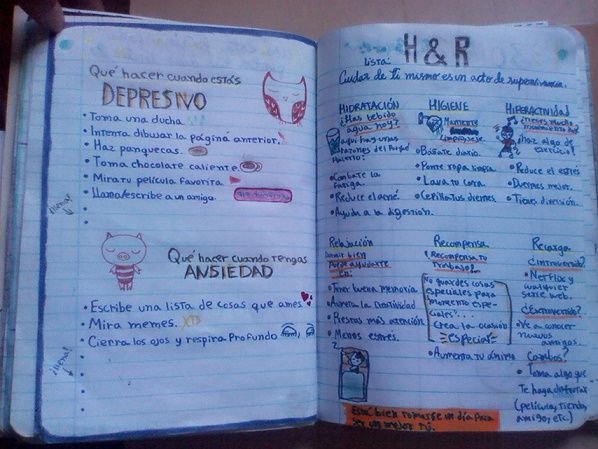 Qué hacer cuando estás
DEPRESIVO
• Toma una ducha.
• Intenta dibujar la página anterior.
• Haz panquecas.
• Toma chocolate caliente.
• Mira tu película favorita.
• Llama/escribe a un amigo.
¡llena!
Qué hacer cuando tengas
ANSIEDAD
• Escribe una lista de cosas que ames.
• Mira memes. XD
• Cierra los ojos y respira profundo
¡llena!
H & R
lista:
Cuidar de ti mismo es un acto de supervivencia.
HIDRATACIÓN
¿Has bebido
agua hoy?
aquí hay unas
razones del porqué
hacerlo:
• Combate la
fatiga.
• Reduce el acné.
• Ayuda a la digestión.
HIGIENE
Mantente
• Báñate diario.
• Ponte ropa limpia.
• Lava tu cara.
• Cepilla tus dientes.
HIPERACTIVIDAD
¿Haz algo de
ejercicio?
• Reduce el estrés
• Duermes mejor.
• Tienes diversión.
Relajación
Dormir bien
puede ayudarte
en:
• Tener buena memoria
• Aumenta la creatividad
• Prestas más atención.
• Menos estrés.
Recompensa
¿Recompensa tu
trabajo?
No guardes cosas
especiales para
momentos espe-
ciales...
Crea la ocasión
especial
• Aumenta tu ánimo
Recarga
¿Introvertido?
• Netflix y
cualquier
serie web.
¿Extrovertido?
• Ve a conocer
nuevos
amigos.
Cambos?
• Toma algo que
Te haga disfrutar
(película, tienda,
amigo, etc)
Está bien tomarse un día para
ser un mejor tú.